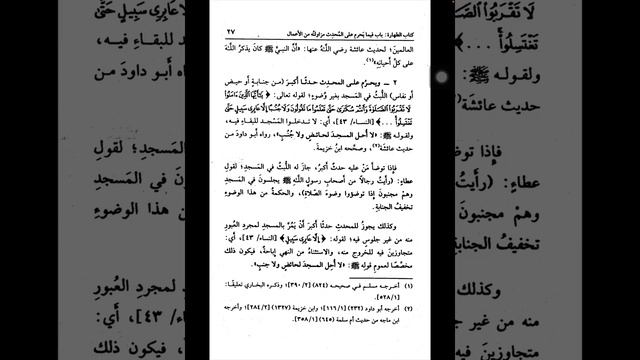 كتاب الطهارة: باب فيما يحرم على المُحدِث مزاولتُه من الأعمال
٢٧
العالمين؛ لحديث عائشة رضي اللَّهُ عنها: «أنَّ النبيَّ ﷺ كان يذكرُ اللَّهَ
على كلِّ أحيانِه»(١).
٢ - ويحرم على المحدِثِ حدثًا أكبرَ (من جنابةٍ أو حيضٍ
أو نفاسٍ) اللُّبثُ في المسجدِ بغيرِ وُضوءٍ؛ لقوله تعالى: ﴿يَا أَيُّهَا الَّذِينَ ءَامَنُوا
لَا تَقْرَبُوا الصَّلَاةَ وَأَنتُمْ سُكَارَى حَتَّى تَعْلَمُوا مَا تَقُولُونَ وَلَا جُنُبًا إِلَّا عَابِرِي سَبِيلٍ حَتَّى
تَغْتَسِلُوا . . .﴾ [النساء/ ٤٣]، أي: لا تدخلوا المَسْجِد للبقاءِ فيه،
ولقولِه ﷺ: «لا أحل المسجدَ لحائضٍ ولا جُنُبٍ»، رواه أبو داودَ من
حديثِ عائشةَ(٢)، وصحَّحه ابنُ خزيمةَ.
فإذا توضأَ مَنْ عليه حدثٌ أكبرُ، جازَ له اللُّبثُ في المسجدِ؛ لقولِ
عطاءٍ: (رأيتُ رجالًا من أصحابِ رسولِ اللَّهِ ﷺ يجلسونَ في المَسجدِ
وهمْ مجنبونَ إذا توضؤوا وضوءَ الصَّلاةِ)، والحكمةُ من هذا الوضوءِ
تخفيفُ الجنابةِ.
وكذلك يجوزُ للمحدثِ حدثًا أكبرَ أنْ يَمُرَّ بالمسجدِ لمجردِ العُبورِ
منه من غيرِ جلوسٍ فيه؛ لقوله: ﴿إِلَّا عَابِرِي سَبِيلٍ﴾ [النساء/ ٤٣]، أي:
متجاوزينَ فيه للخُروجِ منه، والاستثناءُ من النهيِ إباحةٌ، فيكون ذلك
مخصِّصًا لعمومِ قولِه ﷺ: «لا أحِل المسجدَ لحائضٍ ولا جنبٍ».
(١) أخرجه مسلم في صحيحه (٨٢٤) [٣٩٠/٢]؛ وذكره البخاري تعليقًا:
[٥٢٨/١].
(٢) أخرجه أبو داود (٢٣٢) [١١٦/١]؛ وابن خزيمة (١٣٢٧) [٢٨٤/٢]؛ وأخرجه
ابن ماجه من حديث أم سلمة (٦٤٥) [٣٥٨/١].